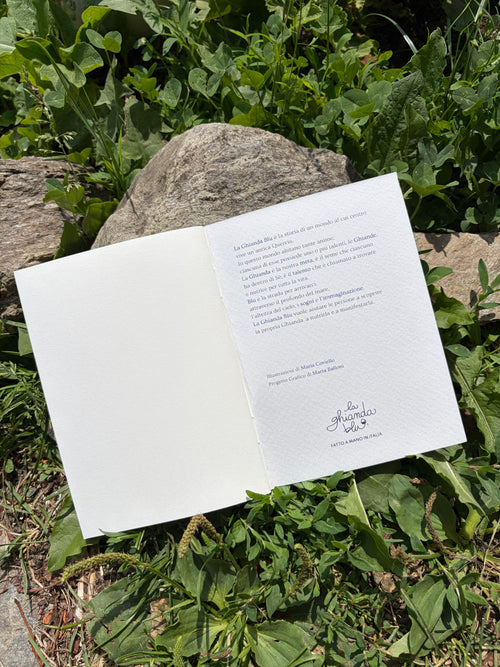 La Ghianda Blu è la storia di un mondo al cui centro
vive un'antica Quercia.
In questo mondo abitano tante anime,
ciascuna di esse possiede uno o più talenti, le Ghiande.
La Ghianda è la nostra meta, è il seme che ciascuno
ha dentro di Sé, è il talento che è chiamato a trovare
e nutrire, per tutta la vita.
Blu è la strada per arrivarci,
attraverso il profondo del mare,
l'altezza del cielo, i sogni e l'immaginazione.
La Ghianda Blu vuole aiutare le persone a scoprire
la propria Ghianda, a nutrirla e a manifestarla.
Illustrazioni di Maria Coviello
Progetto Grafico di Marta
la
ghianda
blu
FATTO A MANO IN ITALIA